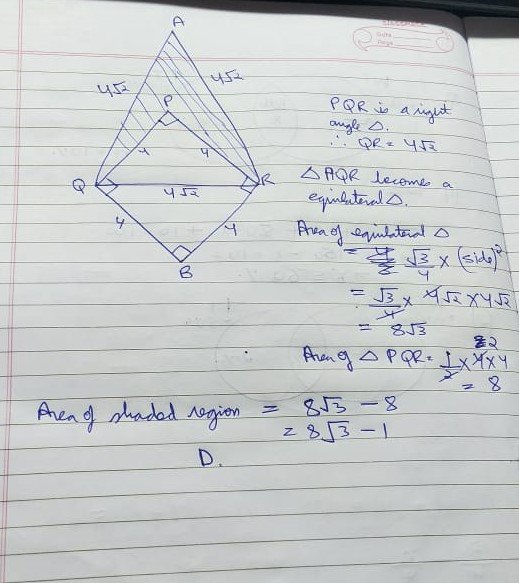 A
4√2
4√2
P
4
4
Q
4√2
R
4
4
B
Date
Page
PQR is a right
angle △.
∴ QR = 4√2
△AQR becomes a
equilateral △.
Area of equilateral △
= √3/4 × (side)²
= √3/4 × 4√2 × 4√2
= 8√3
Area of △ PQR = 1/2 × 4 × 4
2
= 8
Area of shaded region = 8√3 - 8
= 8√3 - 1
D.